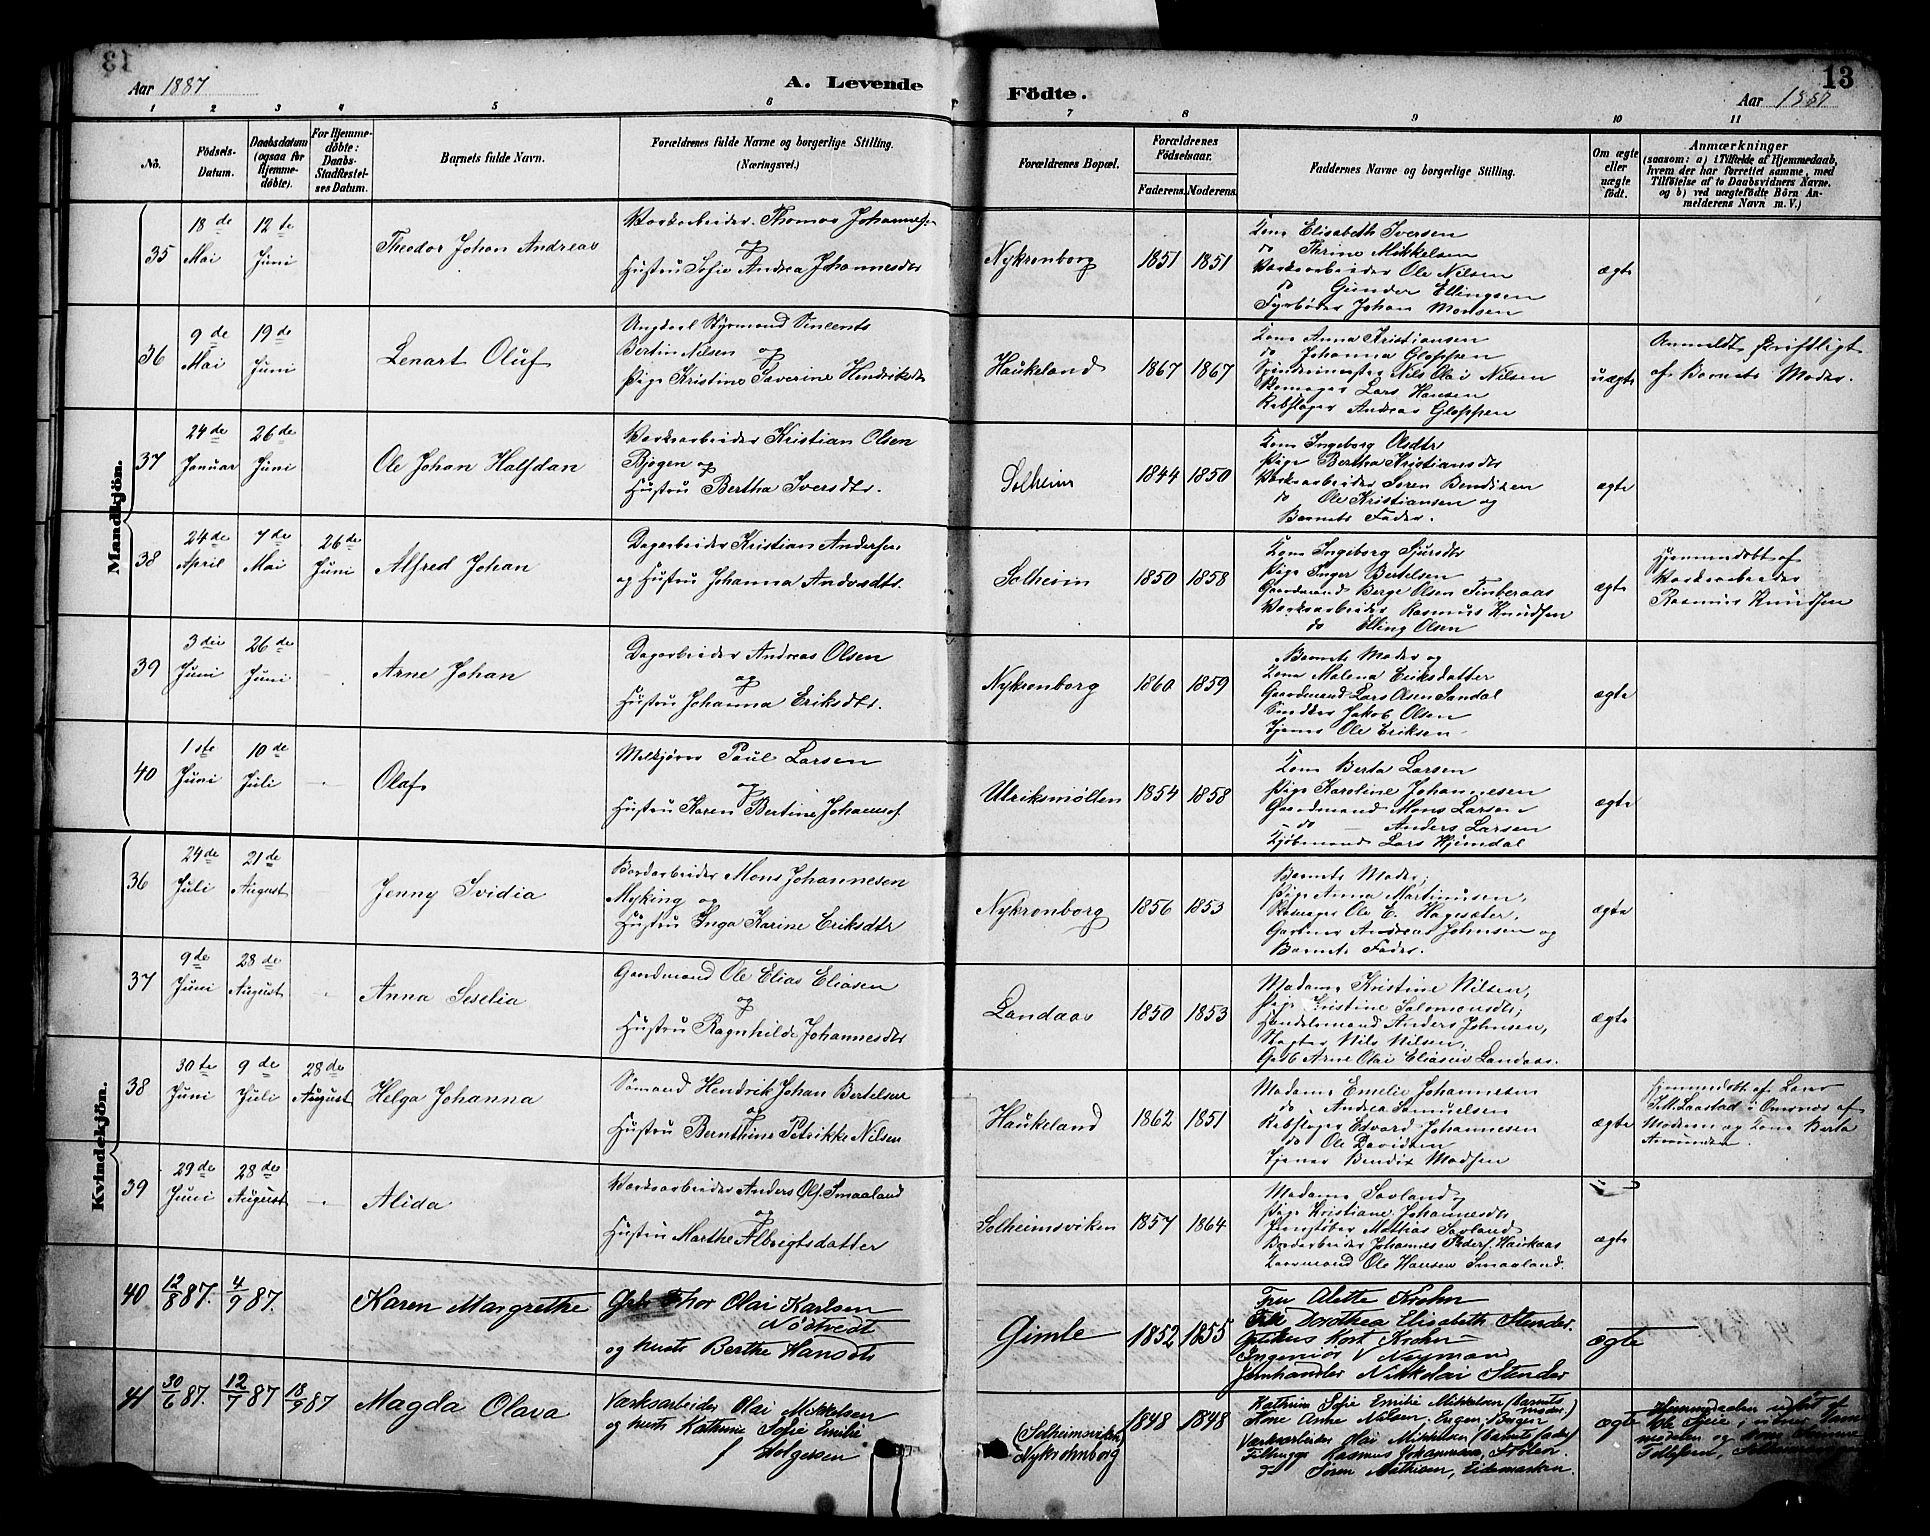 13
Aar 1887
A. Levende
Födte.
Aar 1887
13
1 2 3 4 5 6 7 8 9 10 11
No.
Födsels-
Datum.
Daabsdatum
(ogsaa for
Hjemme-
döbte).
For Hjemme-
döbte:
Daabs-
Stadfæstel-
ses Datum.
Barnets fulde Navn.
Forældrenes fulde Navne og borgerlige Stilling.
(Næringsvei.)
Forældrenes Bopæl.
Forældrenes
Födselsaar.
Faderens. Moderens.
Faddernes Navne og borgerlige Stilling.
Om ægte
eller
uægte
födt.
Anmærkninger
(saasom: a) i Tilfælde af Hjemmedaab,
hvem der har forrettet samme, med
Tilföielse af to Daabsvidners Navne.
og b) ved uægtefödte Börn An-
melderens Navn m. V.)
Mandkjön.
35
18de
Mai
12te
Juni
Theodor Johan Andreas
Værksarbeider Thomas Johannes.
og
Hustru Sofie Andrea Johannesdtr
Nykronborg
1851
1851
Kone Elisabeth Iversen
do Thrine Mikkelsen
Værksarbeider Ole Nilsen
do Gunder Ellingsen
Fyrbøder Johan Monsen
ægte
36
9de
Mai
19de
Juni
Lenart Oluf
Ungkarl Styrmand Vincents
Bertin Nilsen og
Pige Kristine Severine Hendriksdtr
Haukeland
1867
1867
Kone Anna Kristiansen
do Johanna Gloppen
Nils Olai Nilsen
Lars Hansen
Rebslager Andreas Gloppen
uægte
Anmeldt skriftligt
af Barnets Moder.
37
24de
Januar
26de
Juni
Ole Johan Halfdan
Værksarbeider Kristian Olsen
Bjogen og
Hustru Bertha Iversdtr.
Solheim
1844
1850
Kone Ingeborg Olsdtr
Pige Bertha Kristiansdtr
Værksarbeider Søren Bendixen
do Ole Kristiansen og
Barnets Fader.
ægte
38
24de
April
7de
Mai
26de
Juni
Alfred Johan
Dagarbeider Kristian Andersen
og Hustru Johanna Andersdtr.
Solheim
1850
1858
Kone Ingeborg Sjursdtr
Pige Inger Bertelsen
Gaardmand Berge Olsen Tinberaas
Værksarbeider Rasmus Knudsen
do Elling Olsen
ægte
Hjemmedøbt af
Værksarbeider
Rasmus Knudsen
39
3die
Juni
26de
Juni
Arne Johan
Dagarbeider Andreas Olsen
og
Hustru Johanna Eriksdtr.
Nykronborg
1860
1859
Barnets Moder og
Kone Malena Eriksdatter
Gaardmand Lars Olsen Sandal
Snedker Jakob Olsen
Tjener Ole Eriksen
ægte
40
1ste
Juni
10de
Juli
Olaf
Melkjører Paul Larsen
og
Hustru Karen Bertine Johannesd.
Ulriksmølten
1854
1858
Kone Berta Larsen
Pige Karoline Johannesen
Gaardmand Mons Larsen
do Anders Larsen
Kjøbmand Lars Hjemdal
ægte
Kvindekjön.
36
24de
Juli
21de
August
Jenny Ividia
Bordarbeider Mons Johannesen
Myking og
Hustru Inga Karine Eriksdtr
Nykronborg
1856
1853
Barnets Moder,
Pige Anna Martinusen,
Ole E. Hagesæter,
Gartner Andreas Johnsen og
Barnets Fader.
ægte
37
9de
Juni
28de
August
Anna Seselia
Gaardmand Ole Elias Eliasen
og
Hustru Ragnhilde Johannesdtr
Landaas
1850
1853
Madame Kristine Nilsen,
Pige Kristine Salomonsdtr,
Handelsmand Anders Johnsen,
Slagter Nils Nilsen,
Gaardb. Arne Olai Eliasen Landaas.
ægte
38
30te
Juni
9de
Juli
28de
August
Helga Johanna
Sømand Hendrik Johan Bertelsen
og
Hustru Bernthine Petrikke Nilsen
Haukeland
1862
1851
Madame Emelie Johannesen
do Andrea Samuelsen
Rebslager Edvard Johannesen
do Ole Davidsen
Tjener Bendix Madsen
ægte
Hjemmedøbt af
Laastad i af
Moderen og Kone Berta
39
29de
Juni
28de
August
Alida
Værksarbeider Anders Ols. Smaaland
og
Hustru Marthe Albrigtsdatter
Solheimsviken
1857
1864
Madame Sovland,
Pige Kristiane Johannesdtr
Mathias Sovland,
Bordarbeider Johannes Peders. Haukaas
Gaardmand Ole Hansen Smaaland.
ægte
40
12/8 87.
4/9 87.
Karen Margrethe
Thor Olai Karlsen
Nödtvedt
og hustr. Berthe Hansdtr
Gimle
1852
1855
Fru Alette Krohn
Frk Dorothea Elisabeth Stender.
Kort Krohn
Ingeniör V. Nyman
Jernhandler Nikolai Stender
ægte
41
30/6 87.
12/7 87
18/9 87
Magda Olava
Værksarbeider Olai Mikkelsen
og hustr. Kathrine Sofie Emilie
f. Holgersen
(Solheimsviken)
Nykrohnborg
1848
1848
Kathrine Sofie Emilie Mikkelsen (barnets
moder.)
Kone Anne Nilsen,
Værksarbeider Olai Mikkelsen (barnets fader)
Rasmus Johannesen,
do Søren Mathisen, Eidemarken.
ægte
Hjemmedaaben udført af
moderen og
Tollefsen,